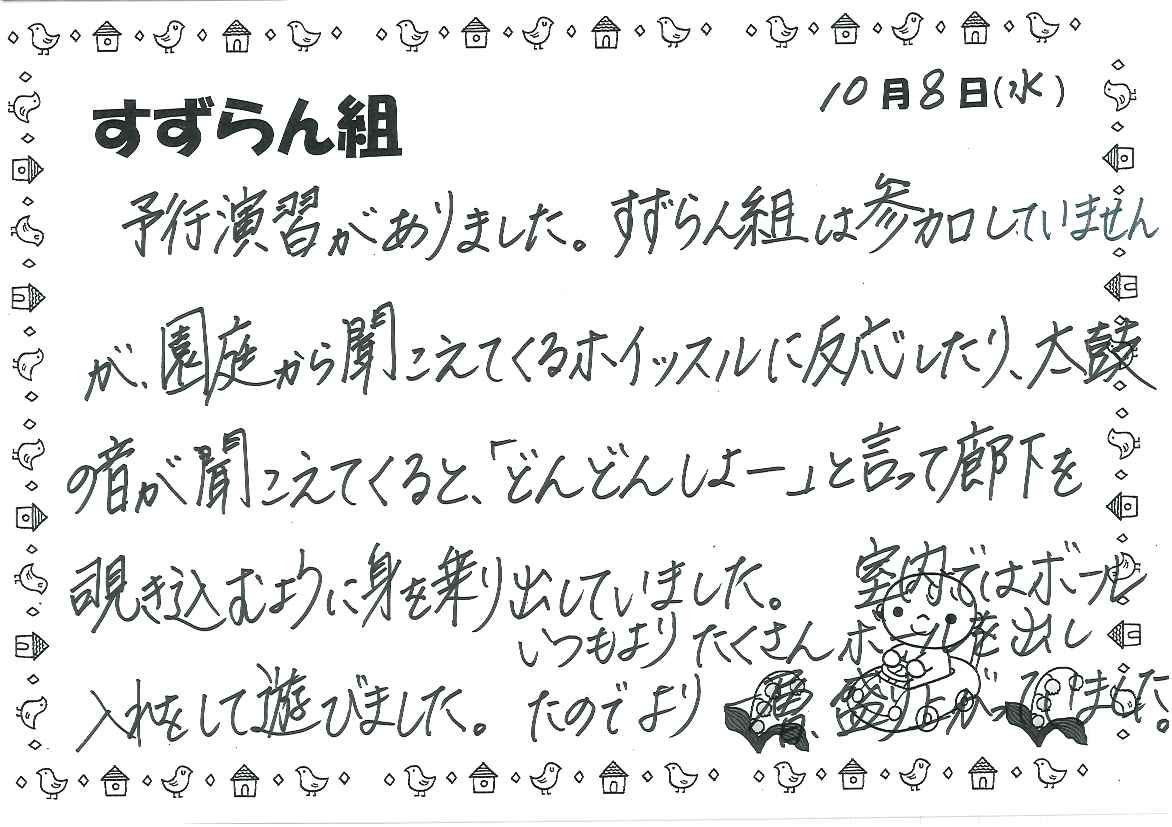 10月8日(水)
すずらん組
予行演習がありました。すずらん組は参加していません
が、園庭から聞こえてくるホイッスルに反応したり、太鼓
の音が聞こえてくると、「どんどんしよー」と言って廊下を
覗き込むように身を乗り出していました。 室内ではボール
いつもよりたくさんボールを出し
入れをして遊びました。 たのでより一層、盛り上がっていました。